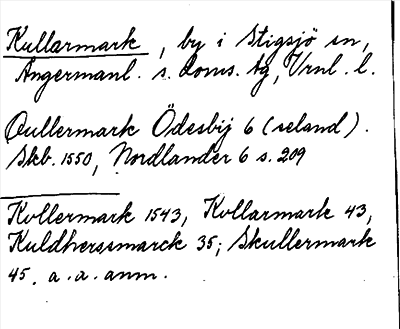 Kullarmark, by i Stigsjö sn,
Ångermanl. s. doms. tg, Vrnl. l.
Qullermark Ödesbij 6 (seland).
Skb. 1550, Nordlander 6 s. 209
Kollermark 1543, Kollarmark 43,
Kuldherssmarck 35; Skullermark
45. a. a. anm.